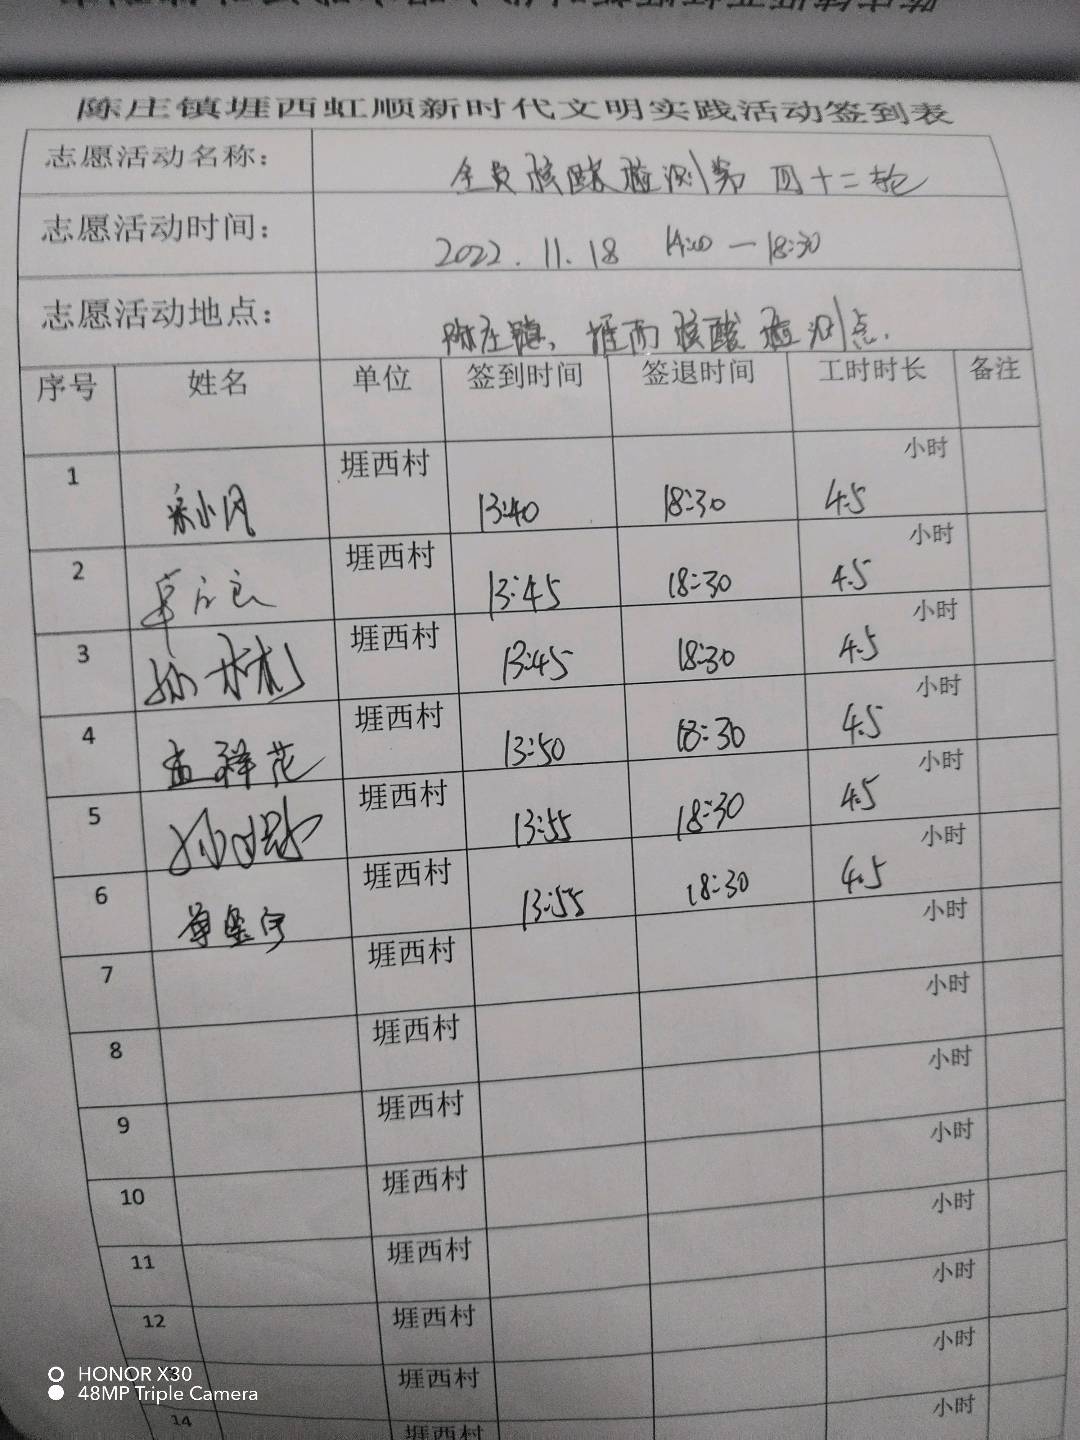 陈庄镇堐西虹顺新时代文明实践活动签到表
志愿活动名称： 全员核酸检测第四十二轮
志愿活动时间： 2022.11.18 14:00—18:30
志愿活动地点： 陈庄镇、堐西核酸检测点.
序号 姓名 单位 签到时间 签退时间 工时时长 备注
1 堐西村 13:40 18:30 4.5 小时
2 堐西村 13:45 18:30 4.5 小时
3 堐西村 13:45 18:30 4.5 小时
4 孟祥花 堐西村 13:50 18:30 4.5 小时
5 堐西村 13:55 18:30 4.5 小时
6 堐西村 13:55 18:30 4.5 小时
7 堐西村 小时
8 堐西村 小时
9 堐西村 小时
10 堐西村 小时
11 堐西村 小时
12 堐西村 小时
堐西村 小时
14 堐西村 小时
HONOR X30
48MP Triple Camera